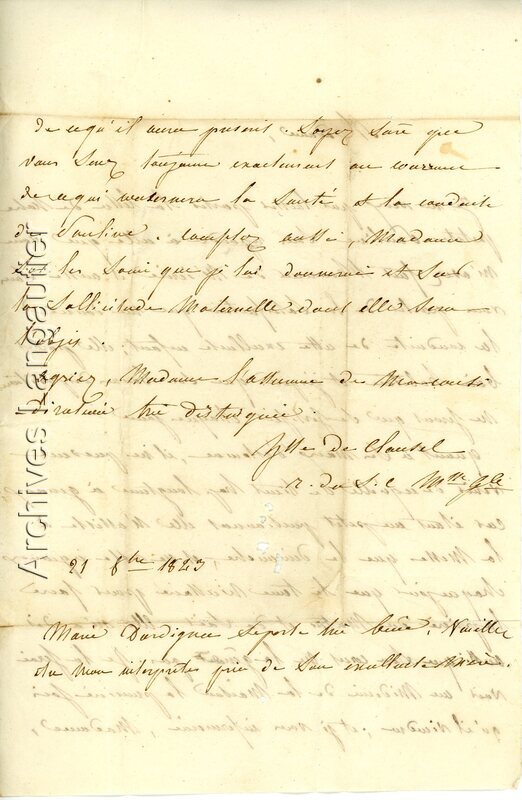 de ce qu'il aura prescrit. Soyez sûre que
vous serez toujours exactement au courant
de ce qui concernera la santé et la conduite
de Pauline. comptez aussi, Madame
sur les soins que je lui donnerai et sur
la sollicitude Maternelle dont elle sera
l'objet.
Agréez, Madame l'assurance de Ma consi-
dération très distinguée.
de Clausel
r. du S. C.
21 8bre 1823
Marie Dardignac se porte très bien. Veuillez
être mon interprète près de son excellente
Archives Langautier